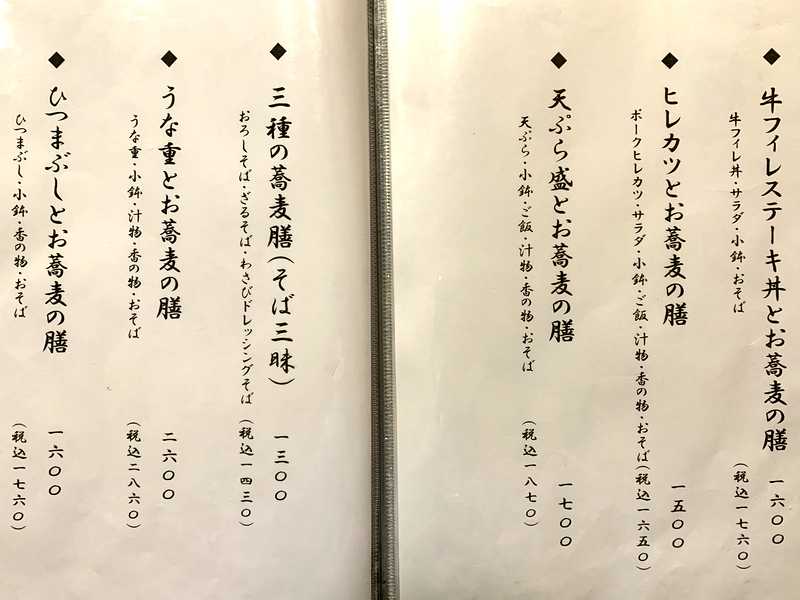 ◆牛フィレステーキ丼とお蕎麦の膳 一六〇〇
牛フィレ丼・サラダ・小鉢・おそば (税込一七六〇)
◆ヒレカツとお蕎麦の膳 一五〇〇
ポークヒレカツ・サラダ・小鉢・ご飯・汁物・香の物・おそば(税込一六五〇)
◆天ぷら盛とお蕎麦の膳 一七〇〇
天ぷら・小鉢・ご飯・汁物・香の物・おそば (税込一八七〇)
◆三種の蕎麦膳(そば三昧) 一三〇〇
おろしそば・ざるそば・わさびドレッシングそば (税込一四三〇)
◆うな重とお蕎麦の膳 二六〇〇
うな重・小鉢・汁物・香の物・おそば (税込二八六〇)
◆ひつまぶしとお蕎麦の膳 一六〇〇
ひつまぶし・小鉢・香の物・おそば (税込一七六〇)